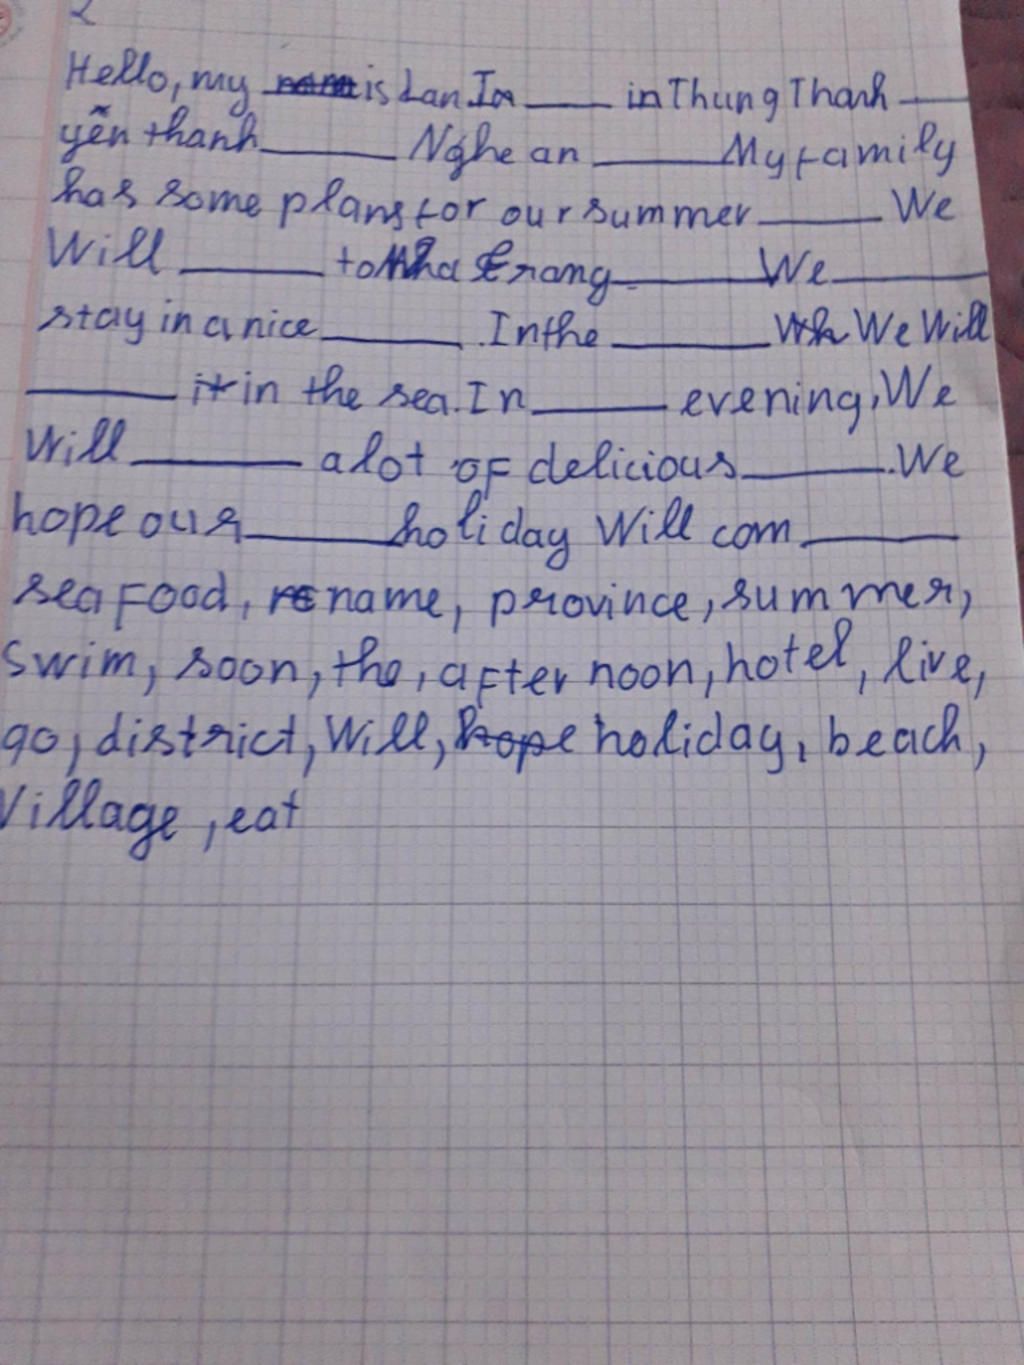 2
Hello, my ____ is Lan. In ____ in Thung Thanh ____
yên thanh ____ Nghe an ____ My family
has some plans for our summer ____ We
Will ____ to Nha Trang ____ We ____
stay in a nice ____ . In the ____ We Will
____ it in the sea. In ____ evening, We
Will ____ a lot of delicious ____ . We
hope our ____ holiday Will com ____
seafood, name, province, summer,
swim, soon, the, afternoon, hotel, live,
go, district, Will, holiday, beach,
Village, eat